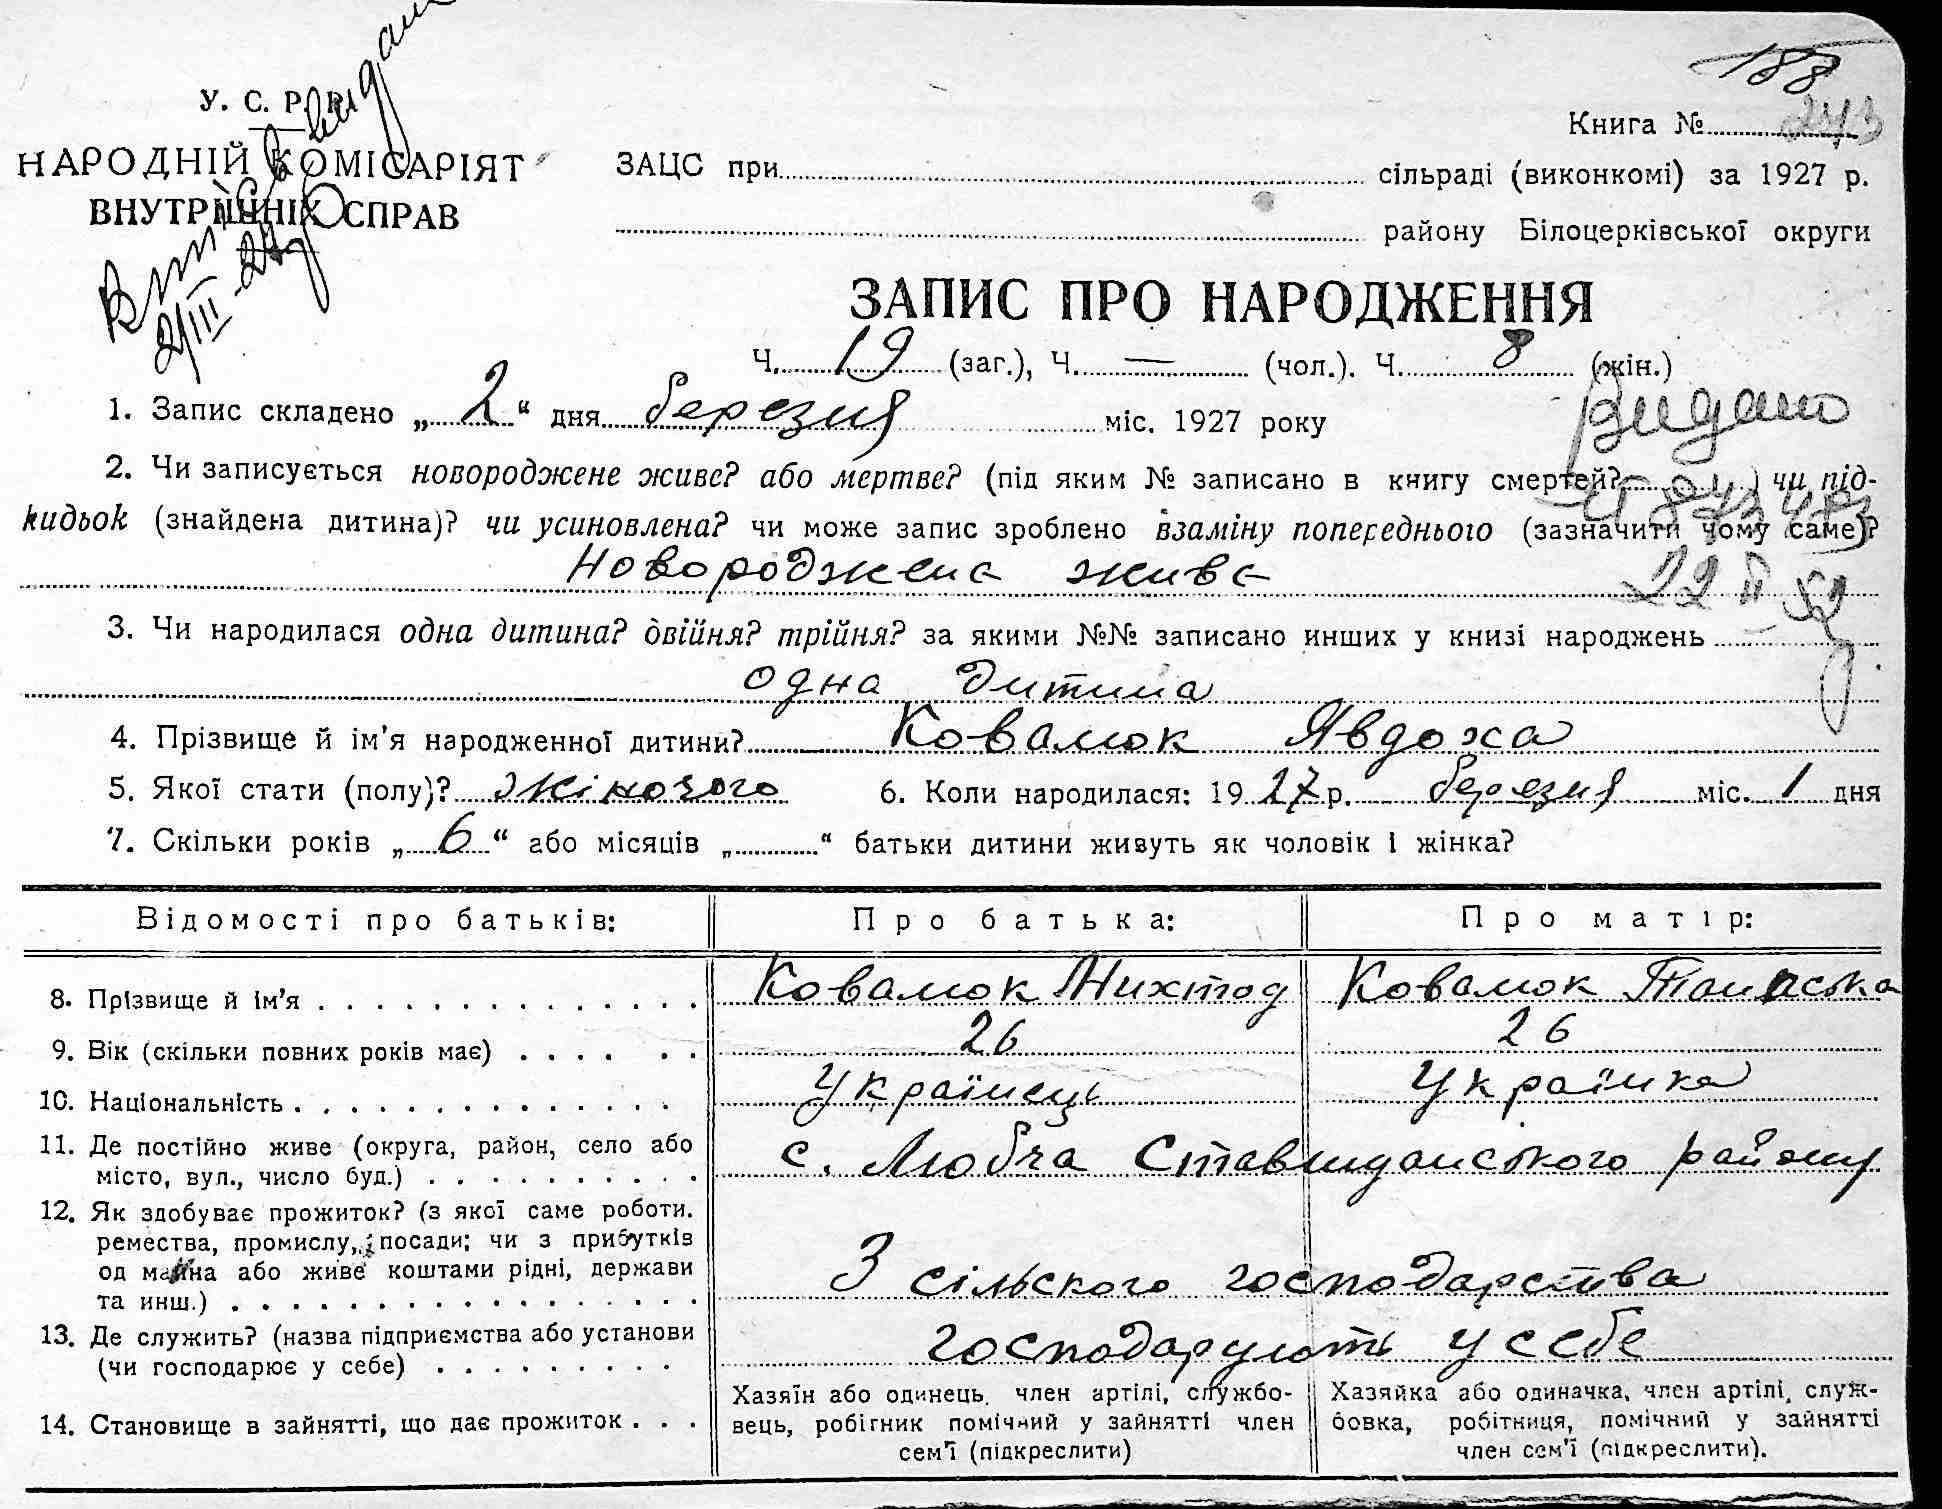 188
У. С. Р. Р.
Книга № 273
НАРОДНІЙ КОМІСАРІЯТ
ВНУТРІШНІХ СПРАВ
ЗАЦС при сільраді (виконкомі) за 1927 р.
району Білоцерківської округи
ЗАПИС ПРО НАРОДЖЕННЯ
Ч. 19 (заг.), Ч. — (чол.). Ч. 8 (жін.)
1. Запис складено „ 2 “ дня березня міс. 1927 року
Видано
2. Чи записується новороджене живе? або мертве? (під яким № записано в книгу смертей? ) чи під-
кидьок (знайдена дитина)? чи усиновлена? чи може запис зроблено взаміну попереднього (зазначити чому саме)?
Новороджена жива
22 II 52
3. Чи народилася одна дитина? двійня? трійня? за якими №№ записано инших у книзі народжень
одна дитина
4. Прізвище й ім’я народженної дитини? Ковалюк Явдоха
5. Якої стати (полу)? жіночого 6. Коли народилася: 19 27 р. березня міс. 1 дня
7. Скільки років „ 6 “ або місяців „ “ батьки дитини живуть як чоловік і жінка?
Відомості про батьків: Про батька: Про матір:
8. Прізвище й ім’я Ковалюк Ковалюк
9. Вік (скільки повних років має) 26 26
10. Національність Українець Українка
11. Де постійно живе (округа, район, село або
місто, вул., число буд.) с. Любча Ставищанського району
12. Як здобуває прожиток? (з якої саме роботи.
ремества, промислу, посади; чи з прибутків
од майна або живе коштами рідні, держави
та инш.) З сільського господарства
13. Де служить? (назва підприємства або установи
(чи господарює у себе) господарують у себе
14. Становище в зайнятті, що дає прожиток
Хазяїн або одинець, член артілі, службо-
вець, робітник помічний у зайнятті член
сем’ї (підкреслити)
Хазяйка або одиначка, член артілі, служ-
бовка, робітниця, помічний у зайнятті
член сем’ї (підкреслити).